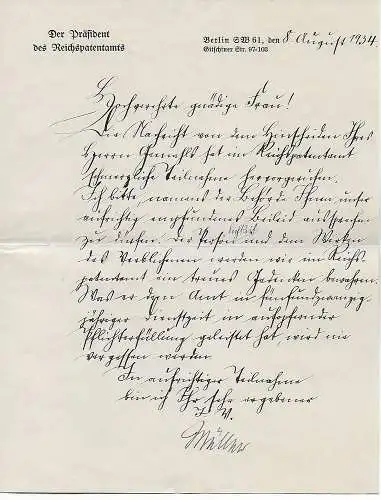 Der Präsident
des Reichspatentamts
Berlin SW 61, den 8. August 1934.
Gitschiner Str. 97-103
Hochverehrte gnädige Frau!
Die Nachricht von dem Hinscheiden Ihres
Herrn Gemahls hat im Reichspatentamt
schmerzliche Teilnahme hervorgerufen.
Ich bitte, namens der Behörde Ihnen unser
aufrichtig empfundenes Beileid aussprechen
zu dürfen. Der Person und dem Wirken
des Verblichenen werden wir im Reichs-
patentamt ein treues Gedenken bewahren.
Was er dem Amt in fünfundzwanzig-
jähriger Dienstzeit in aufopfernder
Pflichterfüllung geleistet hat, wird nie
vergessen werden.
In aufrichtiger Teilnahme
bin ich Ihr sehr ergebener
I. V.
Müller